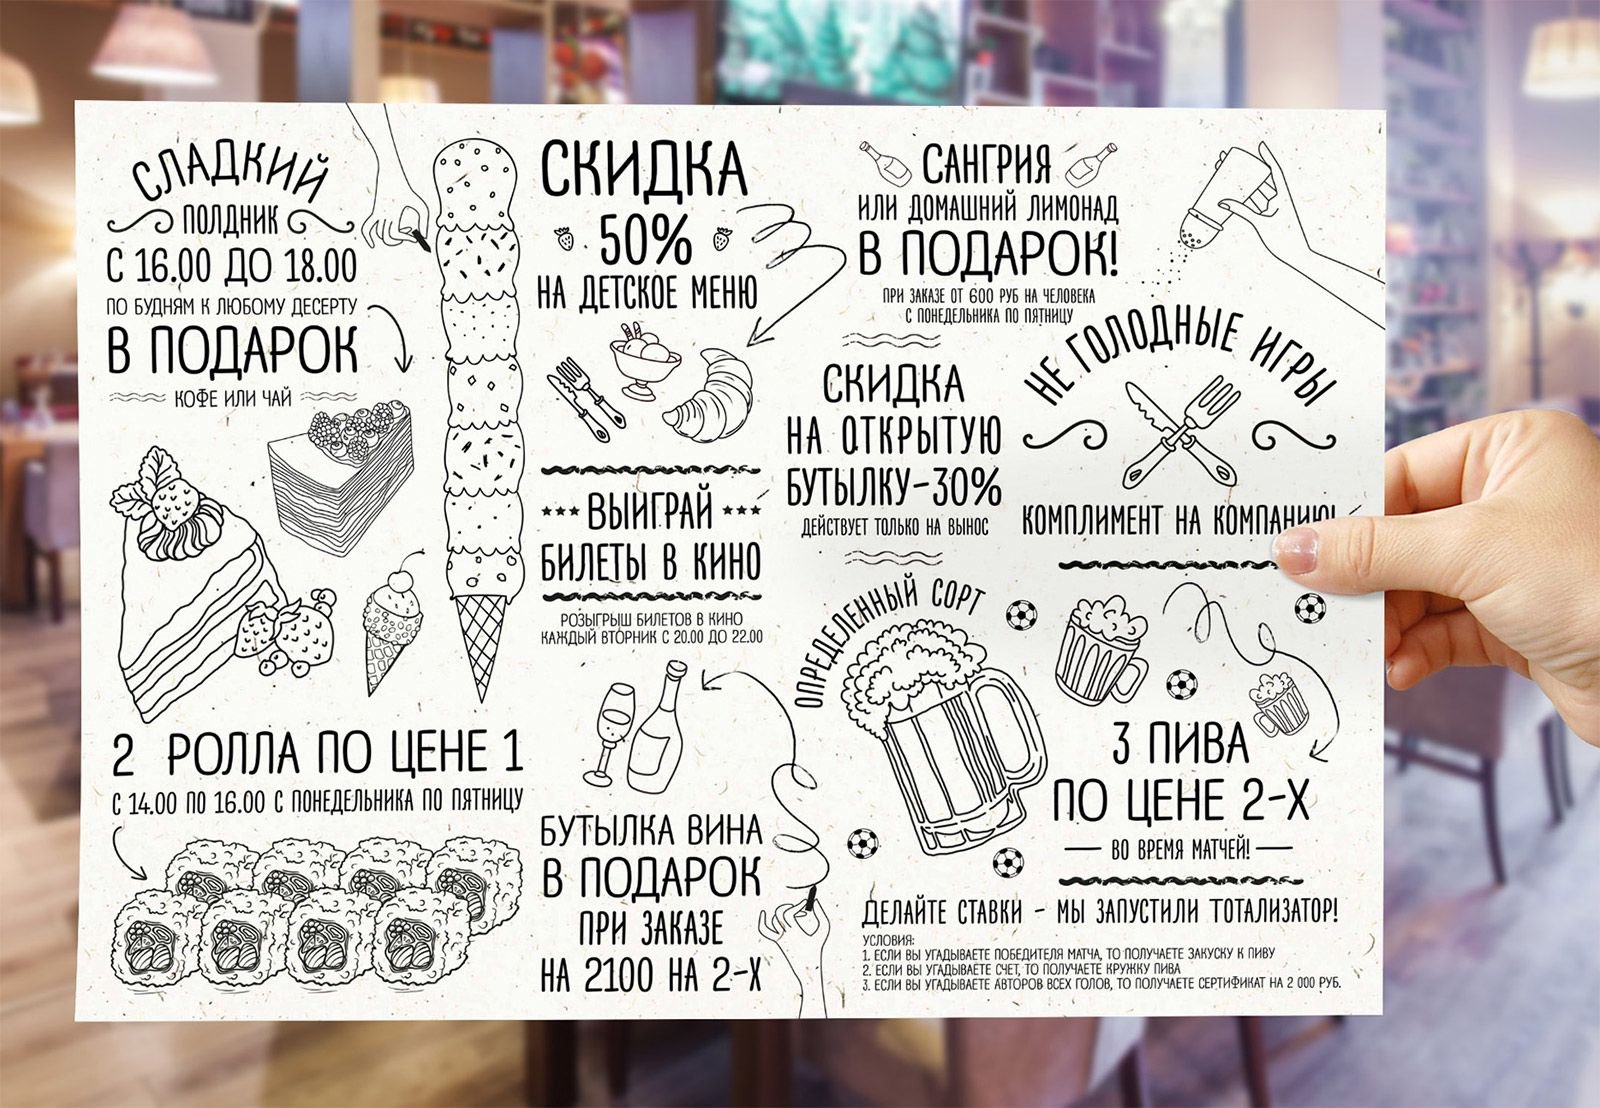 СЛАДКИЙ
ПОЛДНИК
С 16.00 ДО 18.00
ПО БУДНЯМ К ЛЮБОМУ ДЕСЕРТУ
В ПОДАРОК
КОФЕ ИЛИ ЧАЙ
2 РОЛЛА ПО ЦЕНЕ 1
С 14.00 ПО 16.00 С ПОНЕДЕЛЬНИКА ПО ПЯТНИЦУ
СКИДКА
50%
НА ДЕТСКОЕ МЕНЮ
ВЫИГРАЙ
БИЛЕТЫ В КИНО
РОЗЫГРЫШ БИЛЕТОВ В КИНО
КАЖДЫЙ ВТОРНИК С 20.00 ДО 22.00
БУТЫЛКА ВИНА
В ПОДАРОК
ПРИ ЗАКАЗЕ
НА 2100 НА 2-Х
САНГРИЯ
ИЛИ ДОМАШНИЙ ЛИМОНАД
В ПОДАРОК!
ПРИ ЗАКАЗЕ ОТ 600 РУБ НА ЧЕЛОВЕКА
С ПОНЕДЕЛЬНИКА ПО ПЯТНИЦУ
СКИДКА
НА ОТКРЫТУЮ
БУТЫЛКУ-30%
ДЕЙСТВУЕТ ТОЛЬКО НА ВЫНОС
НЕ ГОЛОДНЫЕ ИГРЫ
КОМПЛИМЕНТ НА КОМПАНИЮ!
ОПРЕДЕЛЕННЫЙ СОРТ
3 ПИВА
ПО ЦЕНЕ 2-Х
ВО ВРЕМЯ МАТЧЕЙ!
ДЕЛАЙТЕ СТАВКИ - МЫ ЗАПУСТИЛИ ТОТАЛИЗАТОР!
УСЛОВИЯ:
1. ЕСЛИ ВЫ УГАДЫВАЕТЕ ПОБЕДИТЕЛЯ МАТЧА, ТО ПОЛУЧАЕТЕ ЗАКУСКУ К ПИВУ
2. ЕСЛИ ВЫ УГАДЫВАЕТЕ СЧЕТ, ТО ПОЛУЧАЕТЕ КРУЖКУ ПИВА
3. ЕСЛИ ВЫ УГАДЫВАЕТЕ АВТОРОВ ВСЕХ ГОЛОВ, ТО ПОЛУЧАЕТЕ СЕРТИФИКАТ НА 2 000 РУБ.